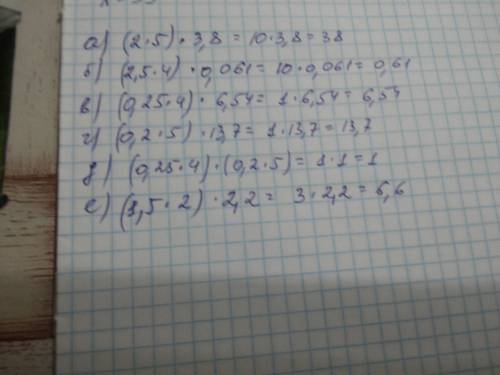 а) (2·5)·3,8 = 10·3,8 = 38
б) (2,5·4)·0,061 = 10·0,061 = 0,61
в) (0,25·4)·6,54 = 1·6,54 = 6,54
г) (0,2·5)·13,7 = 1·13,7 = 13,7
д) (0,25·4)·(0,2·5) = 1·1 = 1
е) (1,5·2)·2,2 = 3·2,2 = 6,6